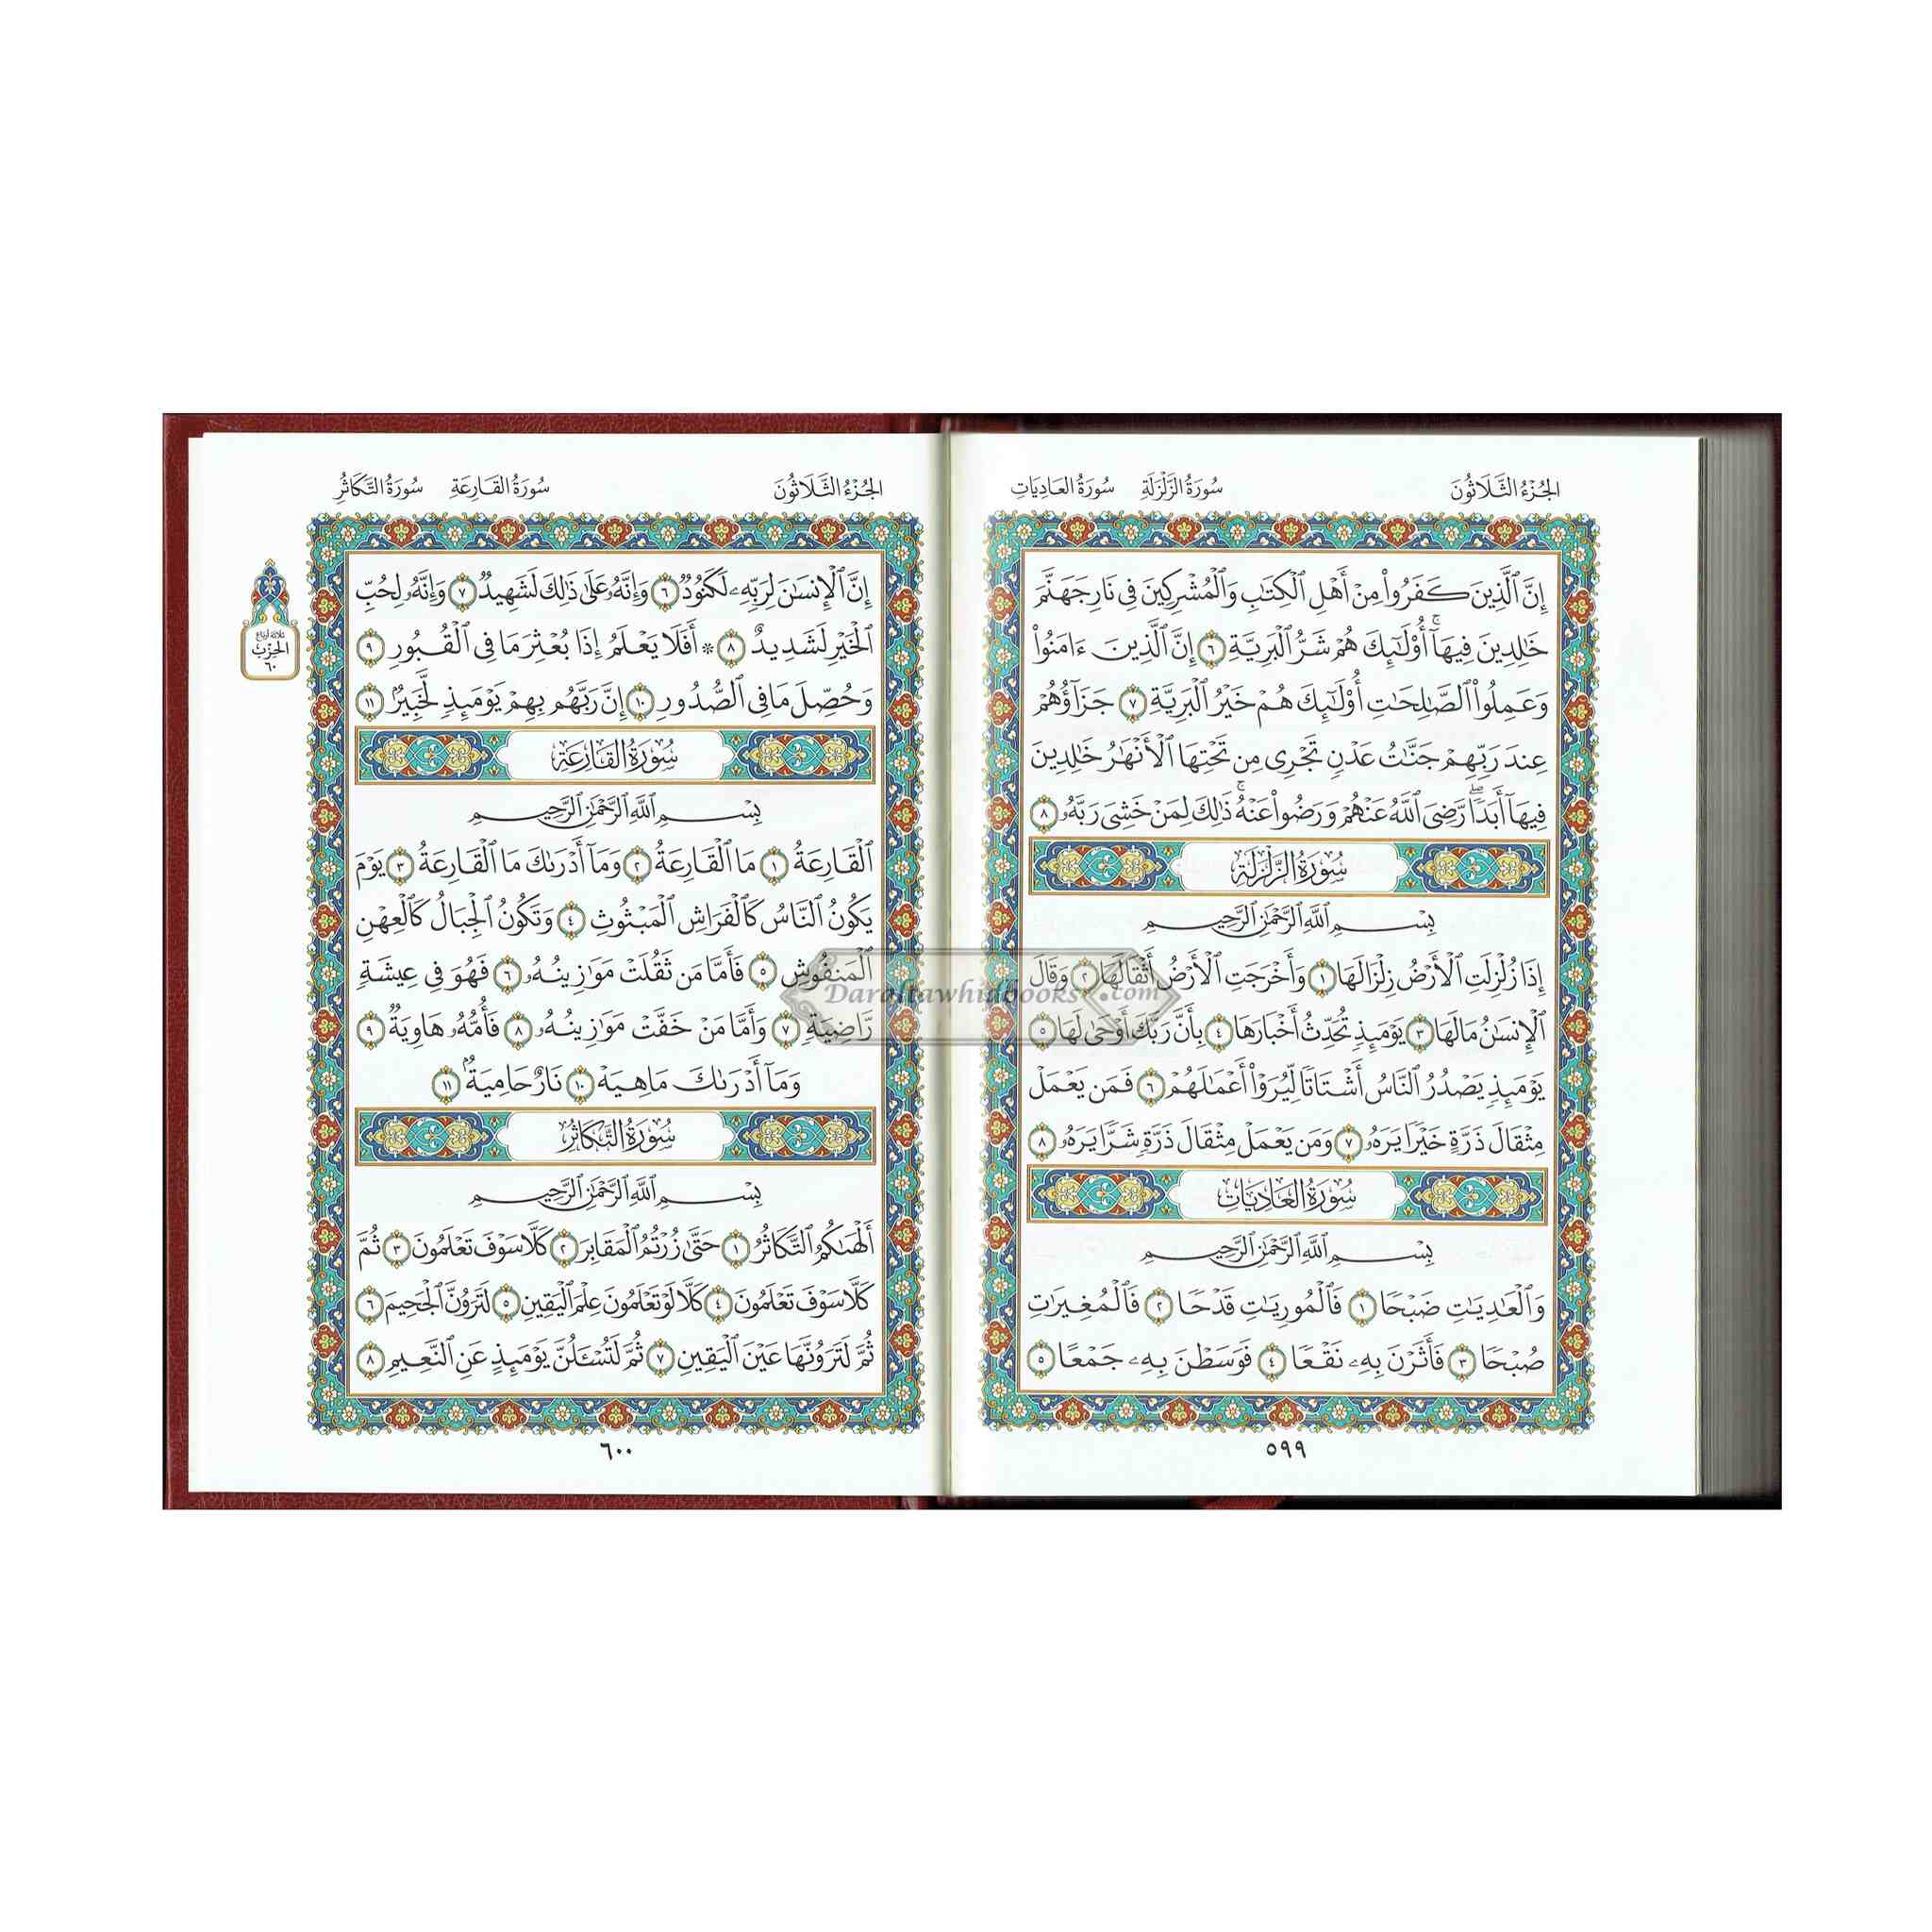 الجُزْءُ الثَّلَاثُونَ سُورَةُ الزَّلْزَلَةِ سُورَةُ العَادِيَاتِ
إِنَّ ٱلَّذِينَ كَفَرُوا۟ مِنْ أَهْلِ ٱلْكِتَٰبِ وَٱلْمُشْرِكِينَ فِى نَارِ جَهَنَّمَ
خَٰلِدِينَ فِيهَآ ۚ أُو۟لَٰٓئِكَ هُمْ شَرُّ ٱلْبَرِيَّةِ ٦ إِنَّ ٱلَّذِينَ ءَامَنُوا۟
وَعَمِلُوا۟ ٱلصَّٰلِحَٰتِ أُو۟لَٰٓئِكَ هُمْ خَيْرُ ٱلْبَرِيَّةِ ٧ جَزَآؤُهُمْ
عِندَ رَبِّهِمْ جَنَّٰتُ عَدْنٍ تَجْرِى مِن تَحْتِهَا ٱلْأَنْهَٰرُ خَٰلِدِينَ
فِيهَآ أَبَدًا ۖ رَّضِىَ ٱللَّهُ عَنْهُمْ وَرَضُوا۟ عَنْهُ ۚ ذَٰلِكَ لِمَنْ خَشِىَ رَبَّهُۥ ٨
سُورَةُ الزَّلْزَلَةِ
بِسْمِ ٱللَّهِ ٱلرَّحْمَٰنِ ٱلرَّحِيمِ
إِذَا زُلْزِلَتِ ٱلْأَرْضُ زِلْزَالَهَا ١ وَأَخْرَجَتِ ٱلْأَرْضُ أَثْقَالَهَا ٢ وَقَالَ
ٱلْإِنسَٰنُ مَا لَهَا ٣ يَوْمَئِذٍ تُحَدِّثُ أَخْبَارَهَا ٤ بِأَنَّ رَبَّكَ أَوْحَىٰ لَهَا ٥
يَوْمَئِذٍ يَصْدُرُ ٱلنَّاسُ أَشْتَاتًا لِّيُرَوْا۟ أَعْمَٰلَهُمْ ٦ فَمَن يَعْمَلْ
مِثْقَالَ ذَرَّةٍ خَيْرًا يَرَهُۥ ٧ وَمَن يَعْمَلْ مِثْقَالَ ذَرَّةٍ شَرًّا يَرَهُۥ ٨
سُورَةُ العَادِيَاتِ
بِسْمِ ٱللَّهِ ٱلرَّحْمَٰنِ ٱلرَّحِيمِ
وَٱلْعَٰدِيَٰتِ ضَبْحًا ١ فَٱلْمُورِيَٰتِ قَدْحًا ٢ فَٱلْمُغِيرَٰتِ
صُبْحًا ٣ فَأَثَرْنَ بِهِۦ نَقْعًا ٤ فَوَسَطْنَ بِهِۦ جَمْعًا ٥
٥٩٩
الجُزْءُ الثَّلَاثُونَ سُورَةُ القَارِعَةِ سُورَةُ التَّكَاثُرِ
إِنَّ ٱلْإِنسَٰنَ لِرَبِّهِۦ لَكَنُودٌ ٦ وَإِنَّهُۥ عَلَىٰ ذَٰلِكَ لَشَهِيدٌ ٧ وَإِنَّهُۥ لِحُبِّ
ٱلْخَيْرِ لَشَدِيدٌ ٨ ۞ أَفَلَا يَعْلَمُ إِذَا بُعْثِرَ مَا فِى ٱلْقُبُورِ ٩
وَحُصِّلَ مَا فِى ٱلصُّدُورِ ١٠ إِنَّ رَبَّهُم بِهِمْ يَوْمَئِذٍ لَّخَبِيرٌۢ ١١
سُورَةُ القَارِعَةِ
بِسْمِ ٱللَّهِ ٱلرَّحْمَٰنِ ٱلرَّحِيمِ
ٱلْقَارِعَةُ ١ مَا ٱلْقَارِعَةُ ٢ وَمَآ أَدْرَىٰكَ مَا ٱلْقَارِعَةُ ٣ يَوْمَ
يَكُونُ ٱلنَّاسُ كَٱلْفَرَاشِ ٱلْمَبْثُوثِ ٤ وَتَكُونُ ٱلْجِبَالُ كَٱلْعِهْنِ
ٱلْمَنفُوشِ ٥ فَأَمَّا مَن ثَقُلَتْ مَوَٰزِينُهُۥ ٦ فَهُوَ فِى عِيشَةٍ
رَّاضِيَةٍ ٧ وَأَمَّا مَنْ خَفَّتْ مَوَٰزِينُهُۥ ٨ فَأُمُّهُۥ هَاوِيَةٌ ٩
وَمَآ أَدْرَىٰكَ مَا هِيَهْ ١٠ نَارٌ حَامِيَةٌۢ ١١
سُورَةُ التَّكَاثُرِ
بِسْمِ ٱللَّهِ ٱلرَّحْمَٰنِ ٱلرَّحِيمِ
أَلْهَىٰكُمُ ٱلتَّكَاثُرُ ١ حَتَّىٰ زُرْتُمُ ٱلْمَقَابِرَ ٢ كَلَّا سَوْفَ تَعْلَمُونَ ٣ ثُمَّ
كَلَّا سَوْفَ تَعْلَمُونَ ٤ كَلَّا لَوْ تَعْلَمُونَ عِلْمَ ٱلْيَقِينِ ٥ لَتَرَوُنَّ ٱلْجَحِيمَ ٦
ثُمَّ لَتَرَوُنَّهَا عَيْنَ ٱلْيَقِينِ ٧ ثُمَّ لَتُسْـَٔلُنَّ يَوْمَئِذٍ عَنِ ٱلنَّعِيمِ ٨
٦٠٠
ثلاثة أرباع
الحِزْب
٦٠
Daraltawhidbooks.com